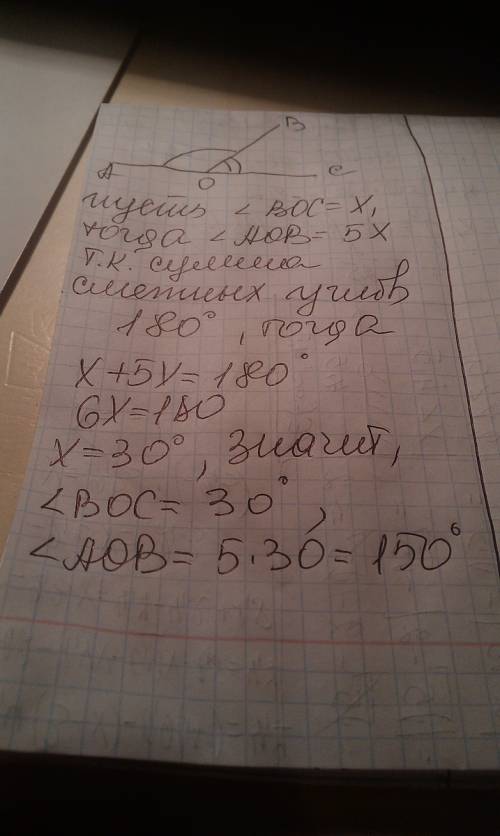 B
A
O
C
пусть ∠BOC = X,
тогда ∠AOB = 5X
т.к. сумма
смежных углов
180°, тогда
X+5X=180°
6X=180
X=30°, значит,
∠BOC= 30°,
∠AOB= 5·30=150°